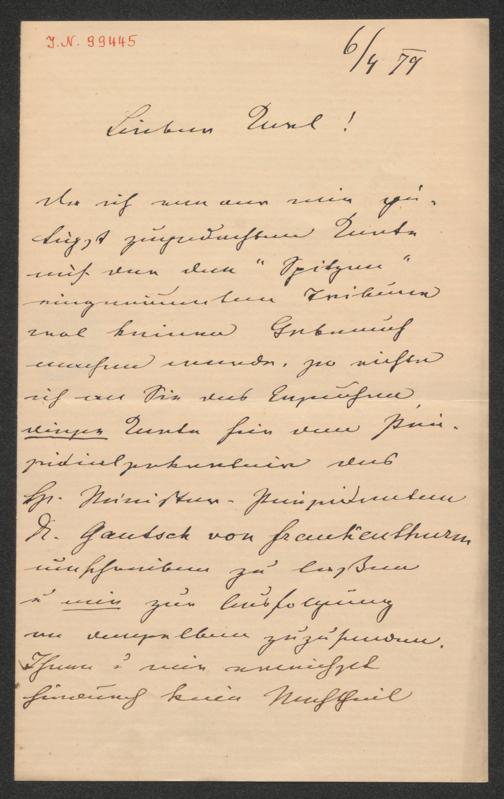 I.N. 99445
6/4 79
Lieber Karl!
Da ich von der mir gü-
tigst zugedachten Karte
auf der den "Spitzen"
eingeräumten Tribüne
wol keinen Gebrauch
machen werde, so richte
ich an Sie das Ersuchen
diese Karte für den Prä-
sidialsekretär des
Hr. Minister-Präsidenten
Dr. Gautsch von Frankenthurm
umschreiben zu lassen
u mir zur Ausfolgung
an denselben zuzusenden.
Ihnen u mir erwächst
hiedurch kein Nachtheil